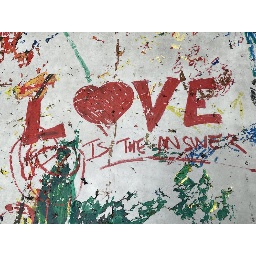 L❤VE
IS THE ANSWER